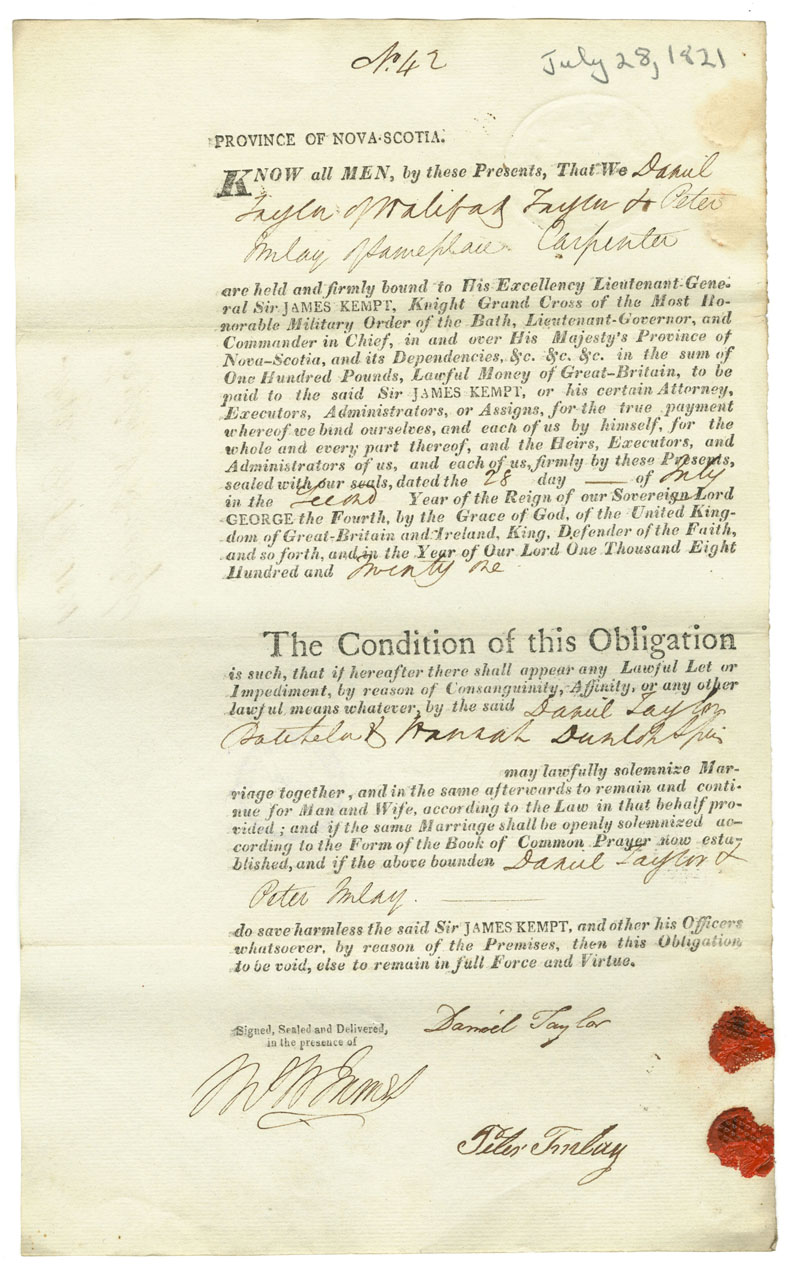 No. 42
July 28, 1821
PROVINCE OF NOVA-SCOTIA.
KNOW all MEN, by these Presents, That We Daniel
Taylor of Halifax Taylor & Peter
Imlay of same place Carpenter
are held and firmly bound to His Excellency Lieutenant-Gene-
ral Sir JAMES KEMPT, Knight Grand Cross of the Most Ho-
norable Military Order of the Bath, Lieutenant-Governor, and
Commander in Chief, in and over His Majesty's Province of
Nova-Scotia, and its Dependencies, &c. &c. &c. in the sum of
One Hundred Pounds, Lawful Money of Great-Britain, to be
paid to the said Sir JAMES KEMPT, or his certain Attorney,
Executors, Administrators, or Assigns, for the true payment
whereof we bind ourselves, and each of us by himself, for the
whole and every part thereof, and the Heirs, Executors, and
Administrators of us, and each of us, firmly by these Presents,
sealed with our seals, dated the 28 day — of July
in the Second Year of the Reign of our Sovereign Lord
GEORGE the Fourth, by the Grace of God, of the United King-
dom of Great-Britain and Ireland, King, Defender of the Faith,
and so forth, and in the Year of Our Lord One Thousand Eight
Hundred and Twenty One
The Condition of this Obligation
is such, that if hereafter there shall appear any Lawful Let or
Impediment, by reason of Consanguinity, Affinity, or any other
lawful means whatever, by the said Daniel Taylor
Batchelor & Hannah Dunlop Spin
may lawfully solemnize Mar-
riage together, and in the same afterwards to remain and conti-
nue for Man and Wife, according to the Law in that behalf pro-
vided; and if the same Marriage shall be openly solemnized ac-
cording to the Form of the Book of Common Prayer now esta-
blished, and if the above bounden Daniel Taylor &
Peter Imlay.
do save harmless the said Sir JAMES KEMPT, and other his Officers
whatsoever, by reason of the Premises, then this Obligation
to be void, else to remain in full Force and Virtue.
Signed, Sealed and Delivered,
in the presence of
Daniel Taylor
Peter Imlay